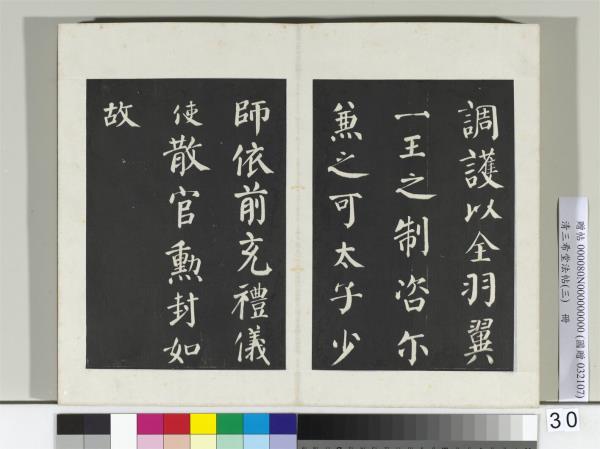 調護以全羽翼
一王之制咨尔
兼之可太子少
師依前充禮儀
使散官勳封如
故
贈帖 000080N000000000 (國贈 032107)
清三希堂法帖(三) 冊
30